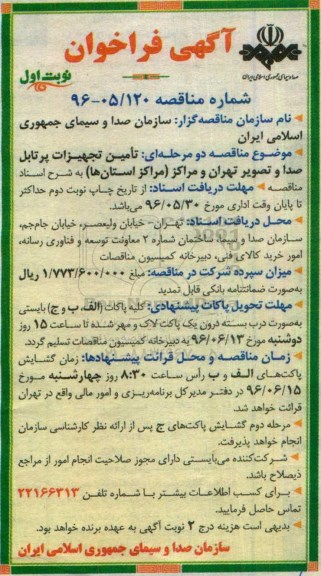 آگهی فراخوان
نوبت اول
شماره مناقصه ۹۶-۰۵/۱۲۰
نام سازمان مناقصه‌گزار: سازمان صدا و سیمای جمهوری
اسلامی ایران
موضوع مناقصه دو مرحله‌ای: تأمین تجهیزات پرتابل
صدا و تصویر تهران و مراکز (مراکز استان‌ها) به شرح اسناد
مناقصه مهلت دریافت اسناد: از تاریخ چاپ نوبت دوم حداکثر
تا پایان وقت اداری مورخ ۹۶/۰۵/۳۰ می‌باشد.
محل دریافت اسناد: تهران - خیابان ولیعصر، خیابان جام‌جم،
سازمان صدا و سیما، ساختمان شماره ۲ معاونت توسعه و فناوری رسانه،
امور خرید کالای فنی، دبیرخانه کمیسیون مناقصات
میزان سپرده شرکت در مناقصه: مبلغ ۱/۷۷۳/۶۰۰/۰۰۰ ریال
به‌صورت ضمانتنامه بانکی قابل تمدید
مهلت تحویل پاکات پیشنهادی: کلیه پاکات (الف، ب و ج) بایستی
به‌صورت درب بسته درون یک پاکت لاک و مهر شده تا ساعت ۱۵ روز
دوشنبه مورخ ۹۶/۰۶/۱۳ به دبیرخانه کمیسیون مناقصات تسلیم گردد.
زمان مناقصه و محل قرائت پیشنهادها: زمان گشایش
پاکت‌های الف و ب رأس ساعت ۸:۳۰ روز چهارشنبه مورخ
۹۶/۰۶/۱۵ در دفتر مدیرکل برنامه‌ریزی و امور مالی واقع در تهران
قرائت خواهد شد.
مرحله دوم گشایش پاکت‌های ج پس از ارائه نظر کارشناسی سازمان
انجام خواهد پذیرفت.
شرکت‌کننده می‌بایستی دارای مجوز صلاحیت انجام امور از مراجع
ذیصلاح باشد.
برای کسب اطلاعات بیشتر با شماره تلفن ۲۲۱۶۶۳۱۳
تماس حاصل فرمایید.
بدیهی است هزینه درج ۲ نوبت آگهی به عهده برنده خواهد بود.
سازمان صدا و سیمای جمهوری اسلامی ایران